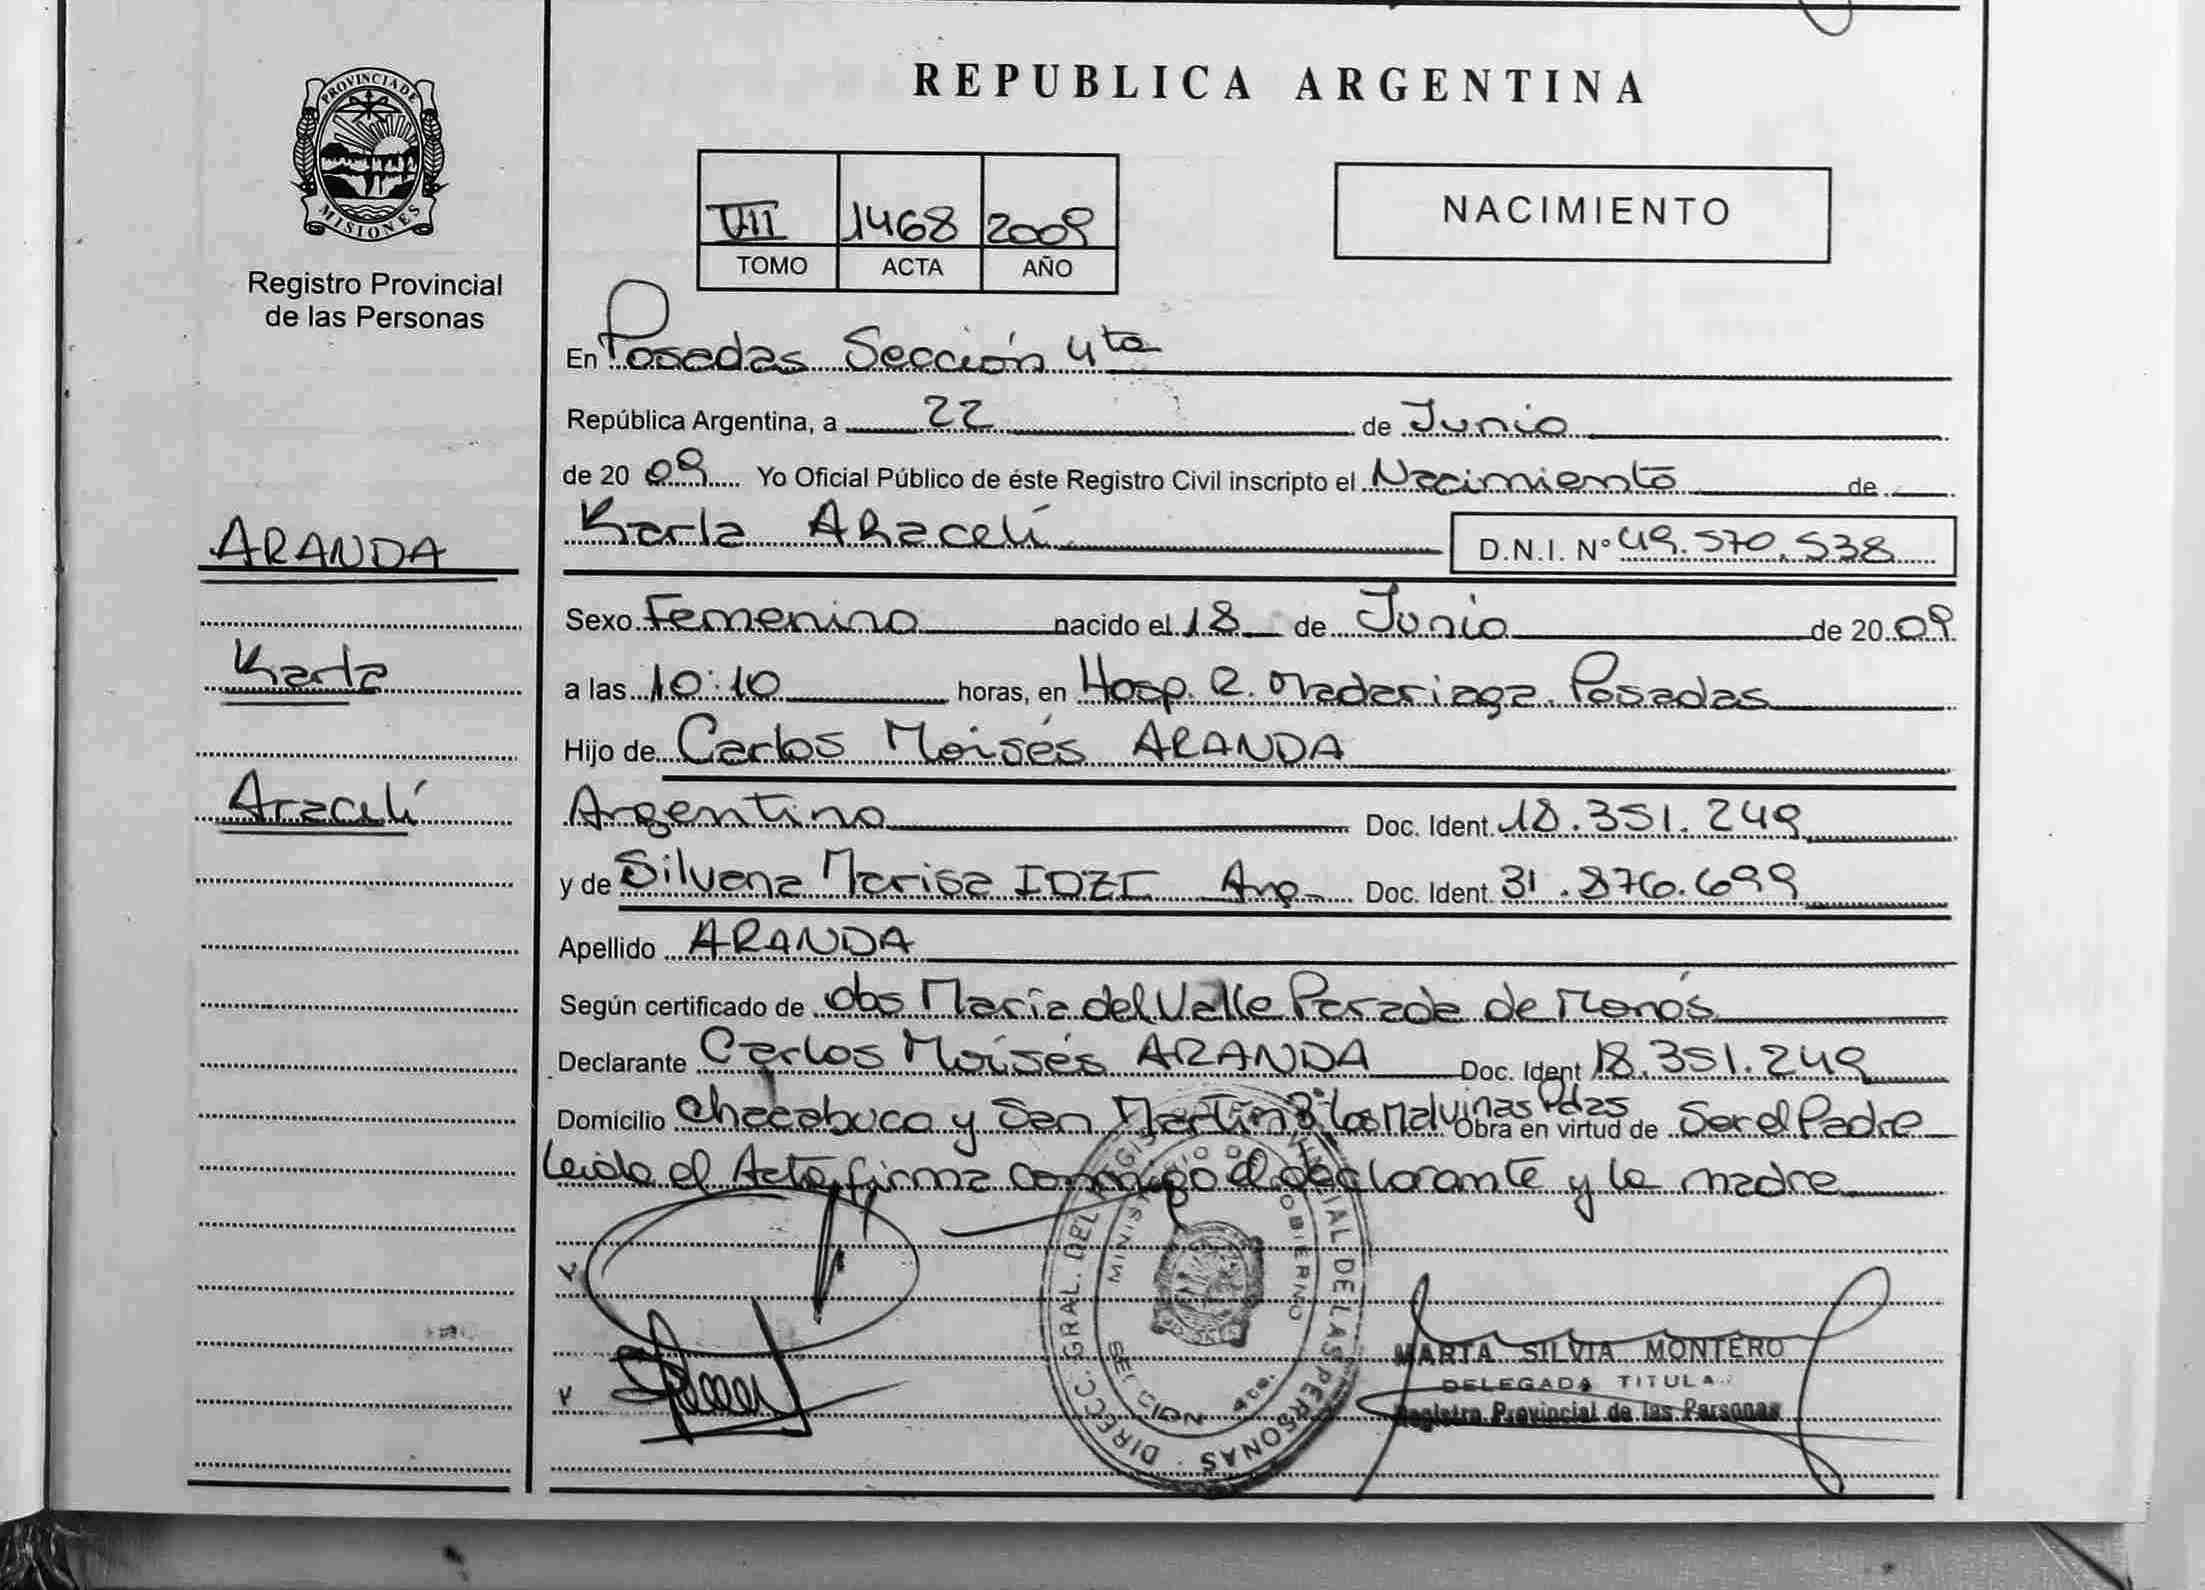 REPUBLICA ARGENTINA
PROVINCIA DE MISIONES
Registro Provincial
de las Personas
VII 1468 2009
TOMO ACTA AÑO
NACIMIENTO
En Posadas Sección 4ta
República Argentina, a 22 de Junio
de 20 09 Yo Oficial Público de éste Registro Civil inscripto el Nacimiento de
Karla Aracelí D.N.I. N° 49.570.538
ARANDA
Karla
Aracelí
Sexo Femenino nacido el 18 de Junio de 20 09
a las 10:10 horas, en Hosp. R. Madariaga. Posadas
Hijo de Carlos Moisés ARANDA
Argentino Doc. Ident. 18.351.249
y de Silvana Marisa IDZI Arg Doc. Ident. 31.876.699
Apellido ARANDA
Según certificado de obs María del Valle Parada de Monós
Declarante Carlos Moisés ARANDA Doc. Ident 18.351.249
Domicilio Chacabuco y San Martin B° Las Malvinas Pdas Obra en virtud de Ser el Padre
Leida el Acta firma conmigo el declarante y la madre
DIRECC. GRAL. DEL DE LAS PERSONAS
SECCION 4ta.
MARTA SILVIA MONTERO
DELEGADA TITULAR
Registro Provincial de las Personas